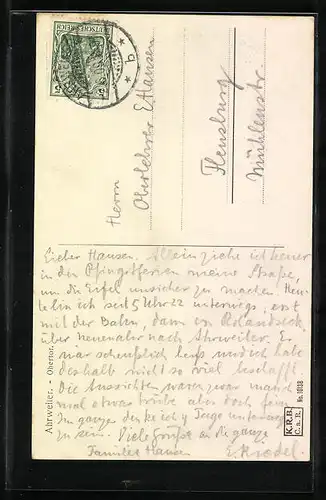 DEUTSCHES REICH
5
* b *
Herrn
Oberlehrer E. Hansen
Flensburg
Mühlenstr.
Lieber Hansen. Allein ziehe ich heuer
in den Pfingstferien meine Straße,
um die Eifel unsicher zu machen. Heu-
te bin ich seit 5 Uhr 22 unterwegs, erst
mit der Bahn, dann von Rolandseck
über Neuenahr nach Ahrweiler. Es
war scheußlich heiß und ich habe
deshalb nicht so viel geschafft.
Die Aussichten waren zwar manch-
mal etwas trübe aber doch fein.
Im ganzen denke ich 4 Tage unterwegs
zu sein. Viele Grüße an die ganze
Familie Hansen
Ahrweiler. - Obertor.
K.R.B.
C. a. R.
No. 10188